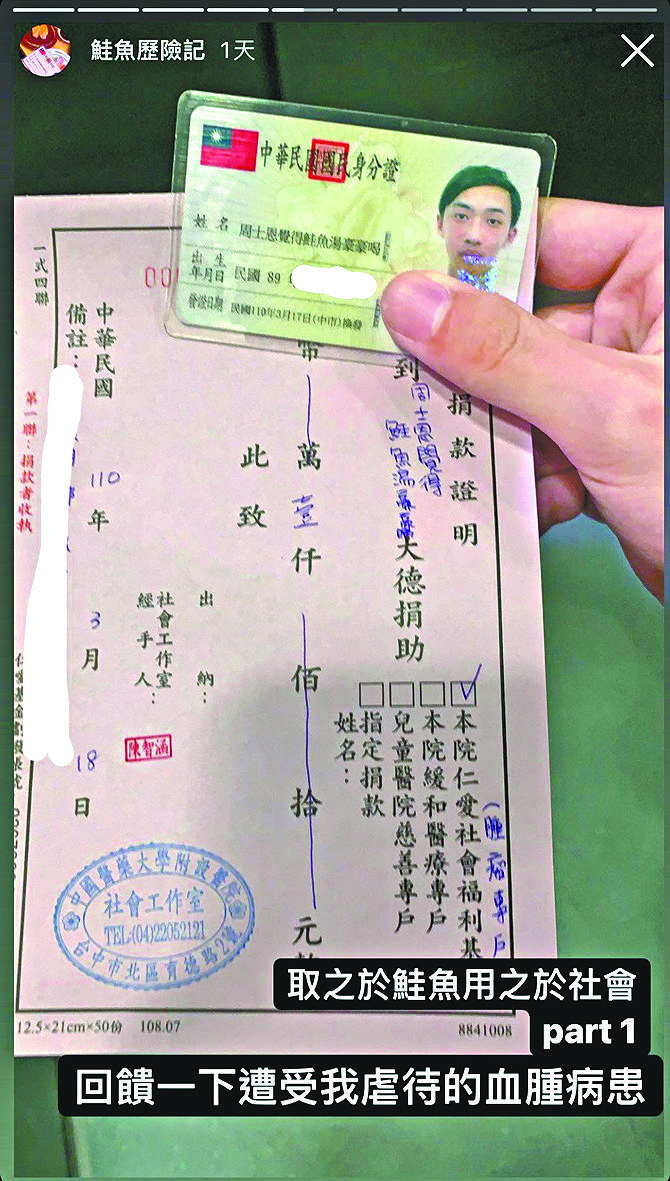 鮭魚歷險記 1天
中華民國國民身分證
姓名 周士恩覺得鮭魚湯豪豪喝
出生年月日 民國 89
發證日期 民國110年3月17日(中市)換發
捐款證明
到 周士恩覺得鮭魚湯豪豪喝 大德捐助
✓本院仁愛社會福利基
(腫瘤專戶
□本院緩和醫療專戶
□兒童醫院慈善專戶
□指定捐款
姓名：
幣 萬壹仟 佰 拾 元
此致
出納：
社會工作室
經手人：
陳智涵
中華民國 110 年 3 月 18 日
備註：
一式四聯
第一聯：捐款者收執
中國醫藥大學附設醫院
社會工作室
TEL:(04)22052121
台中市北區育德路2號
12.5×21cm×50份 108.07
8841008
取之於鮭魚用之於社會
part 1
回饋一下遭受我虐待的血腫病患